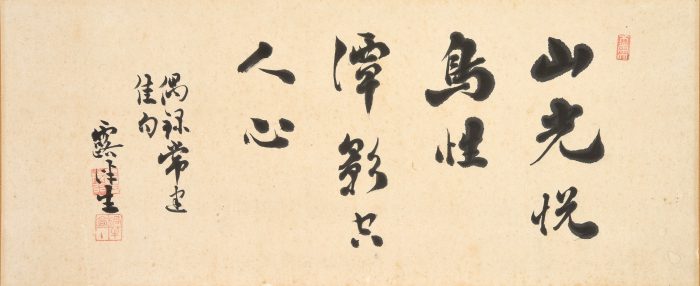 山光悦
鳥性
潭影空
人心
偶録常建
佳句
霞洋生